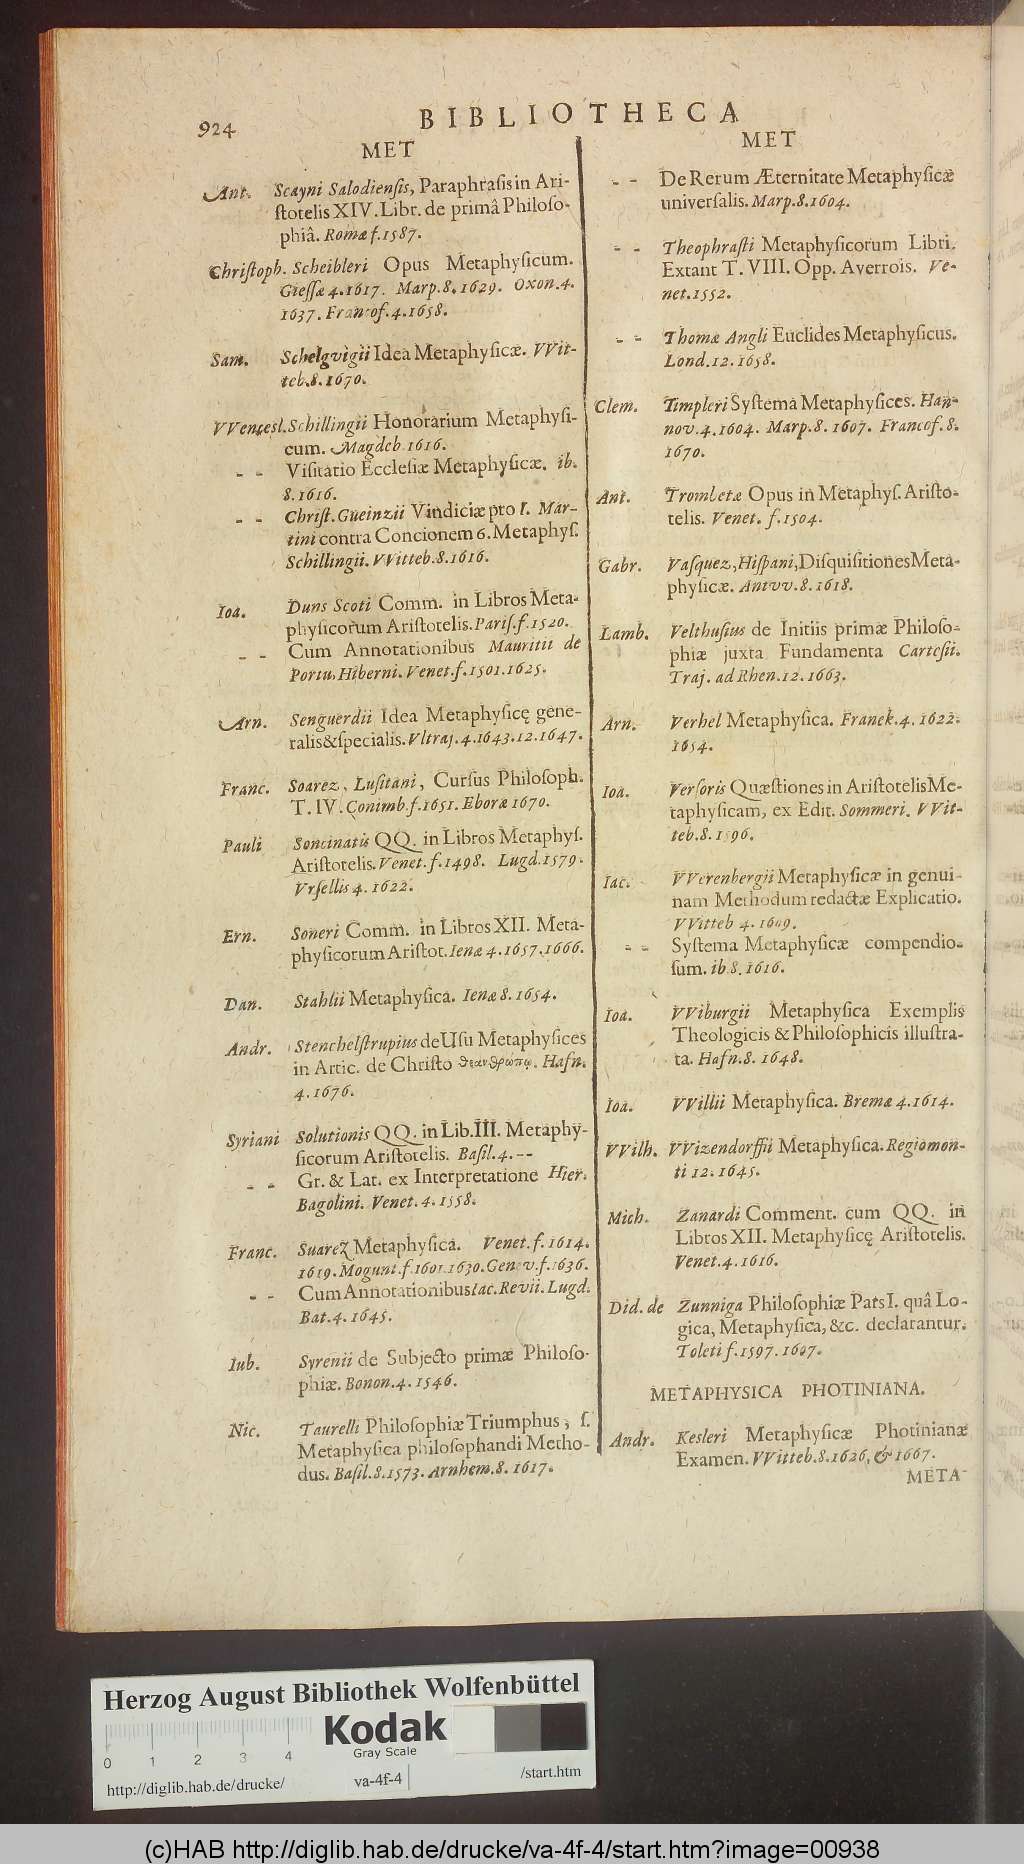 924
BIBLIOTHECA
MET
Ant. Scayni Salodiensis, Paraphrasis in Ari-
stotelis XIV. Libr. de primâ Philoso-
phiâ. Romæ f. 1587.
Christoph. Scheibleri Opus Metaphysicum.
Giessæ 4. 1617. Marp. 8. 1629. Oxon. 4.
1637. Francof. 4. 1658.
Sam. Schelgvigii Idea Metaphysicæ. VVit-
teb. 8. 1670.
VVencesl. Schillingii Honorarium Metaphysi-
cum. Magdeb. 1616.
- - Visitatio Ecclesiæ Metaphysicæ. ib.
8. 1616.
- - Christ. Gueinzii Vindiciæ pro I. Mar-
tini contra Concionem 6. Metaphys.
Schillingii. VVitteb. 8. 1616.
Ioa. Duns Scoti Comm. in Libros Meta-
physicorum Aristotelis. Paris. f. 1520.
- - Cum Annotationibus Mauritii de
Portu, Hiberni. Venet. f. 1501. 1625.
Arn. Senguerdii Idea Metaphysicę gene-
ralis & specialis. Vltraj. 4. 1643. 12. 1647.
Franc. Soarez, Lusitani, Cursus Philosoph.
T. IV. Conimb. f. 1651. Eboræ 1670.
Pauli Soncinatis QQ. in Libros Metaphys.
Aristotelis. Venet. f. 1498. Lugd. 1579.
Vrsellis 4. 1622.
Ern. Soneri Comm. in Libros XII. Meta-
physicorum Aristot. Ienæ 4. 1657. 1666.
Dan. Stahlii Metaphysica. Ienæ 8. 1654.
Andr. Stenchelstrupius de Usu Metaphysices
in Artic. de Christo θεανθρώπῳ. Hafn.
4. 1676.
Syriani Solutionis QQ. in Lib. III. Metaphy-
sicorum Aristotelis. Basil. 4. --
- - Gr. & Lat. ex Interpretatione Hier.
Bagolini. Venet. 4. 1558.
Franc. Suarez Metaphysica. Venet. f. 1614.
1619. Mogunt. f. 1601. 1630. Genev. f. 1636.
- - Cum Annotationibus Iac. Revii. Lugd.
Bat. 4. 1645.
Iub. Syrenii de Subjecto primæ Philoso-
phiæ. Bonon. 4. 1546.
Nic. Taurelli Philosophiæ Triumphus, s.
Metaphysica philosophandi Metho-
dus. Basil. 8. 1573. Arnhem. 8. 1617.
MET
- - De Rerum Æternitate Metaphysicæ
universalis. Marp. 8. 1604.
- - Theophrasti Metaphysicorum Libri.
Extant T. VIII. Opp. Averrois. Ve-
net. 1552.
- - Thomæ Angli Euclides Metaphysicus.
Lond. 12. 1658.
Clem. Timpleri Systema Metaphysices. Han-
nov. 4. 1604. Marp. 8. 1607. Francof. 8.
1670.
Ant. Trombetæ Opus in Metaphys. Aristo-
telis. Venet. f. 1504.
Gabr. Vasquez, Hispani, Disquisitiones Meta-
physicæ. Antvv. 8. 1618.
Lamb. Velthusius de Initiis primæ Philoso-
phiæ juxta Fundamenta Cartesii.
Traj. ad Rhen. 12. 1663.
Arn. Verhel Metaphysica. Franek. 4. 1622.
1654.
Ioa. Versoris Quæstiones in Aristotelis Me-
taphysicam, ex Edit. Sommeri. VVit-
teb. 8. 1596.
Iac. VVerenbergii Metaphysicæ in genui-
nam Methodum redactæ Explicatio.
VVitteb 4. 1609.
- - Systema Metaphysicæ compendio-
sum. ib 8. 1616.
Ioa. VViburgii Metaphysica Exemplis
Theologicis & Philosophicis illustra-
ta. Hafn. 8. 1648.
Ioa. VVillii Metaphysica. Bremæ 4. 1614.
VVilh. VVizendorffii Metaphysica. Regiomon-
ti 12. 1645.
Mich. Zanardi Comment. cum QQ. in
Libros XII. Metaphysicę Aristotelis.
Venet. 4. 1616.
Did. de Zunniga Philosophiæ Pars I. quâ Lo-
gica, Metaphysica, &c. declarantur.
Toleti f. 1597. 1607.
METAPHYSICA PHOTINIANA.
Andr. Kesleri Metaphysicæ Photinianæ
Examen. VVitteb. 8. 1626. & 1667.
META-
Herzog August Bibliothek Wolfenbüttel
Kodak
Gray Scale
0 1 2 3 4
http://diglib.hab.de/drucke/ va-4f-4 /start.htm
(c)HAB http://diglib.hab.de/drucke/va-4f-4/start.htm?image=00938